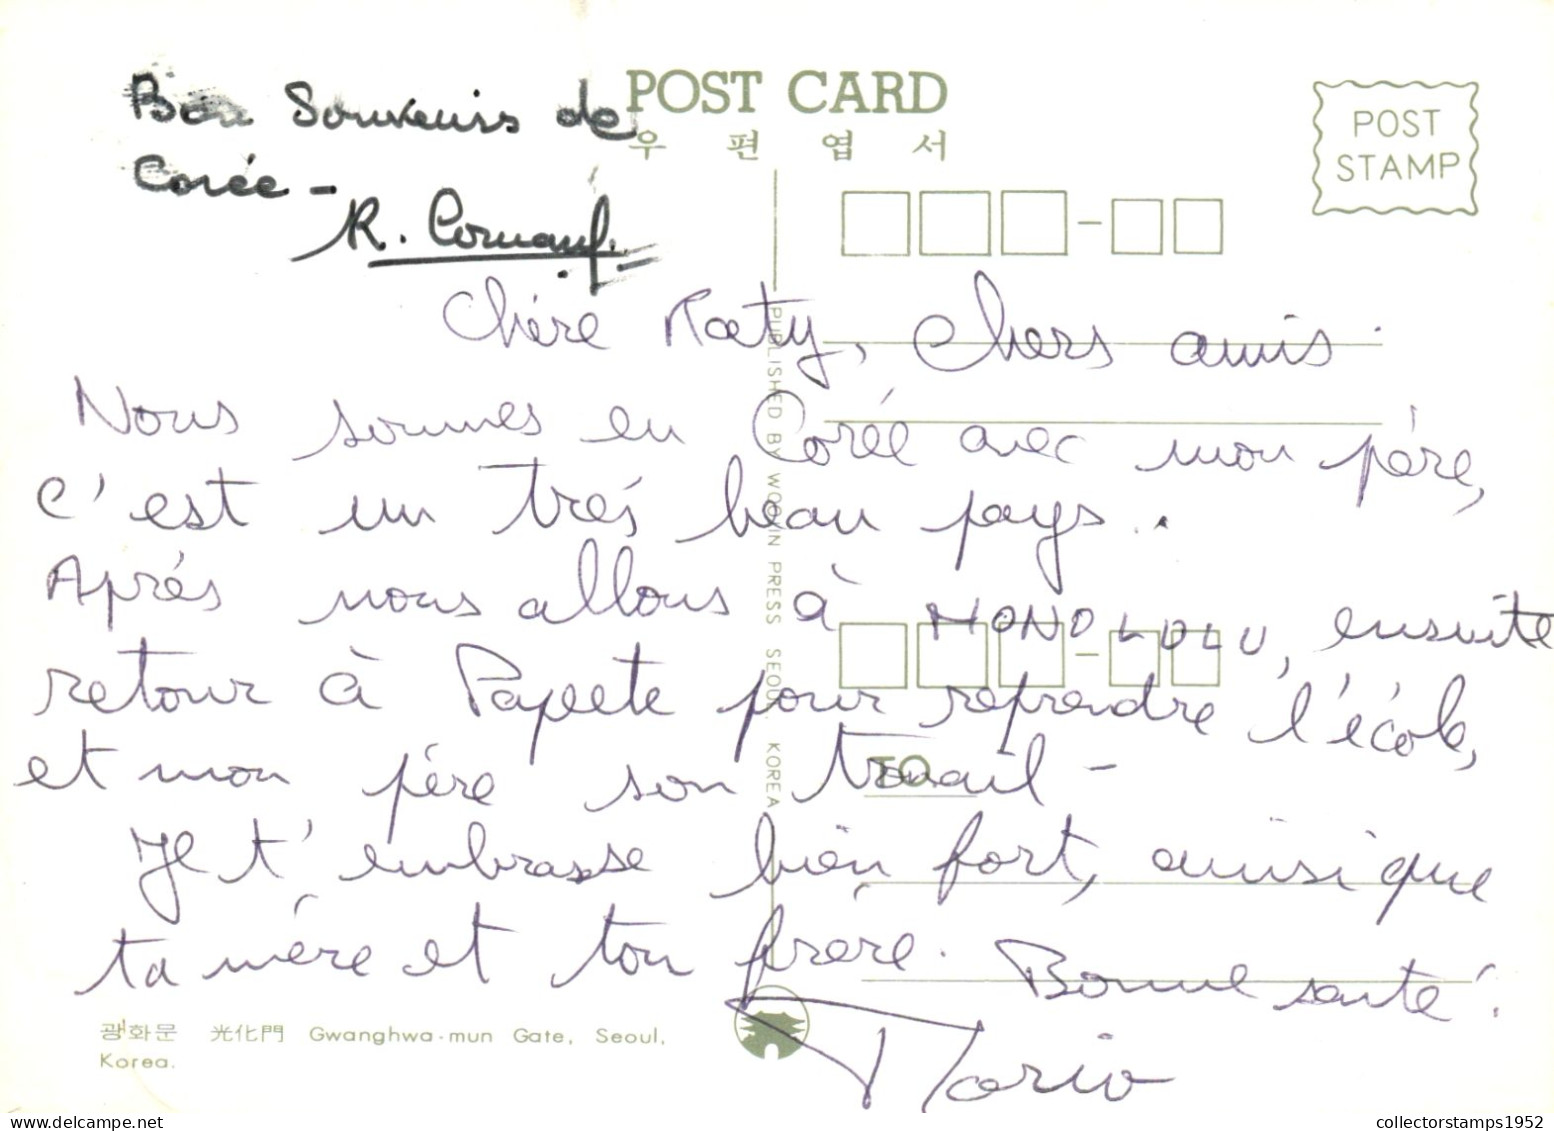 Bon Souvenirs de
Corée -
R.
POST CARD
우 편 엽 서
POST
STAMP
Chére Katy, chers amis.
Nous sommes en Corée avec mon pére,
c'est un trés beau pays.
Aprés nous allons à HONOLULU, ensuite
retour à Papeete pour reprendre l'école,
et mon pére son travail -
Je t'embrasse bien fort, ainsi que
ta mére et ton frére. Bonne santé.
Mario
TO
PUBLISHED BY WOOJIN PRESS SEOUL, KOREA
광화문 光化門 Gwanghwa-mun Gate, Seoul,
Korea.
collectorstamps1952